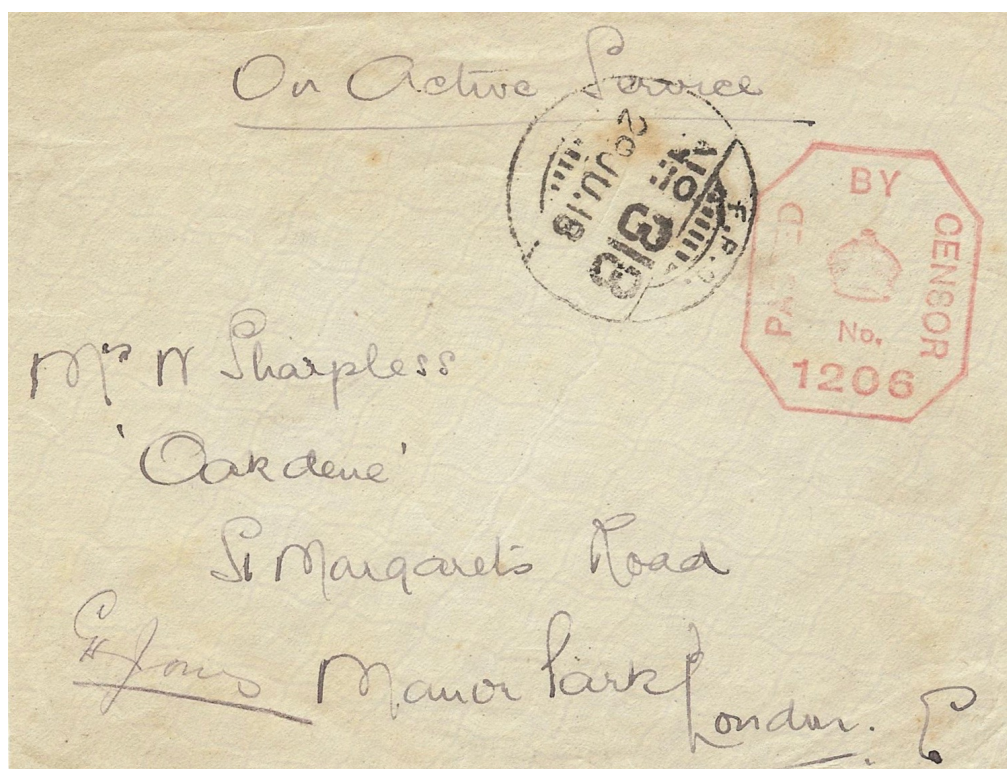 On Active Service
F.P.O.
313
29 JU. 18
PASSED BY CENSOR
No.
1206
Mrs W Sharpless
'Oakdene'
St Margarets Road
Manor Park
London. E
Jones